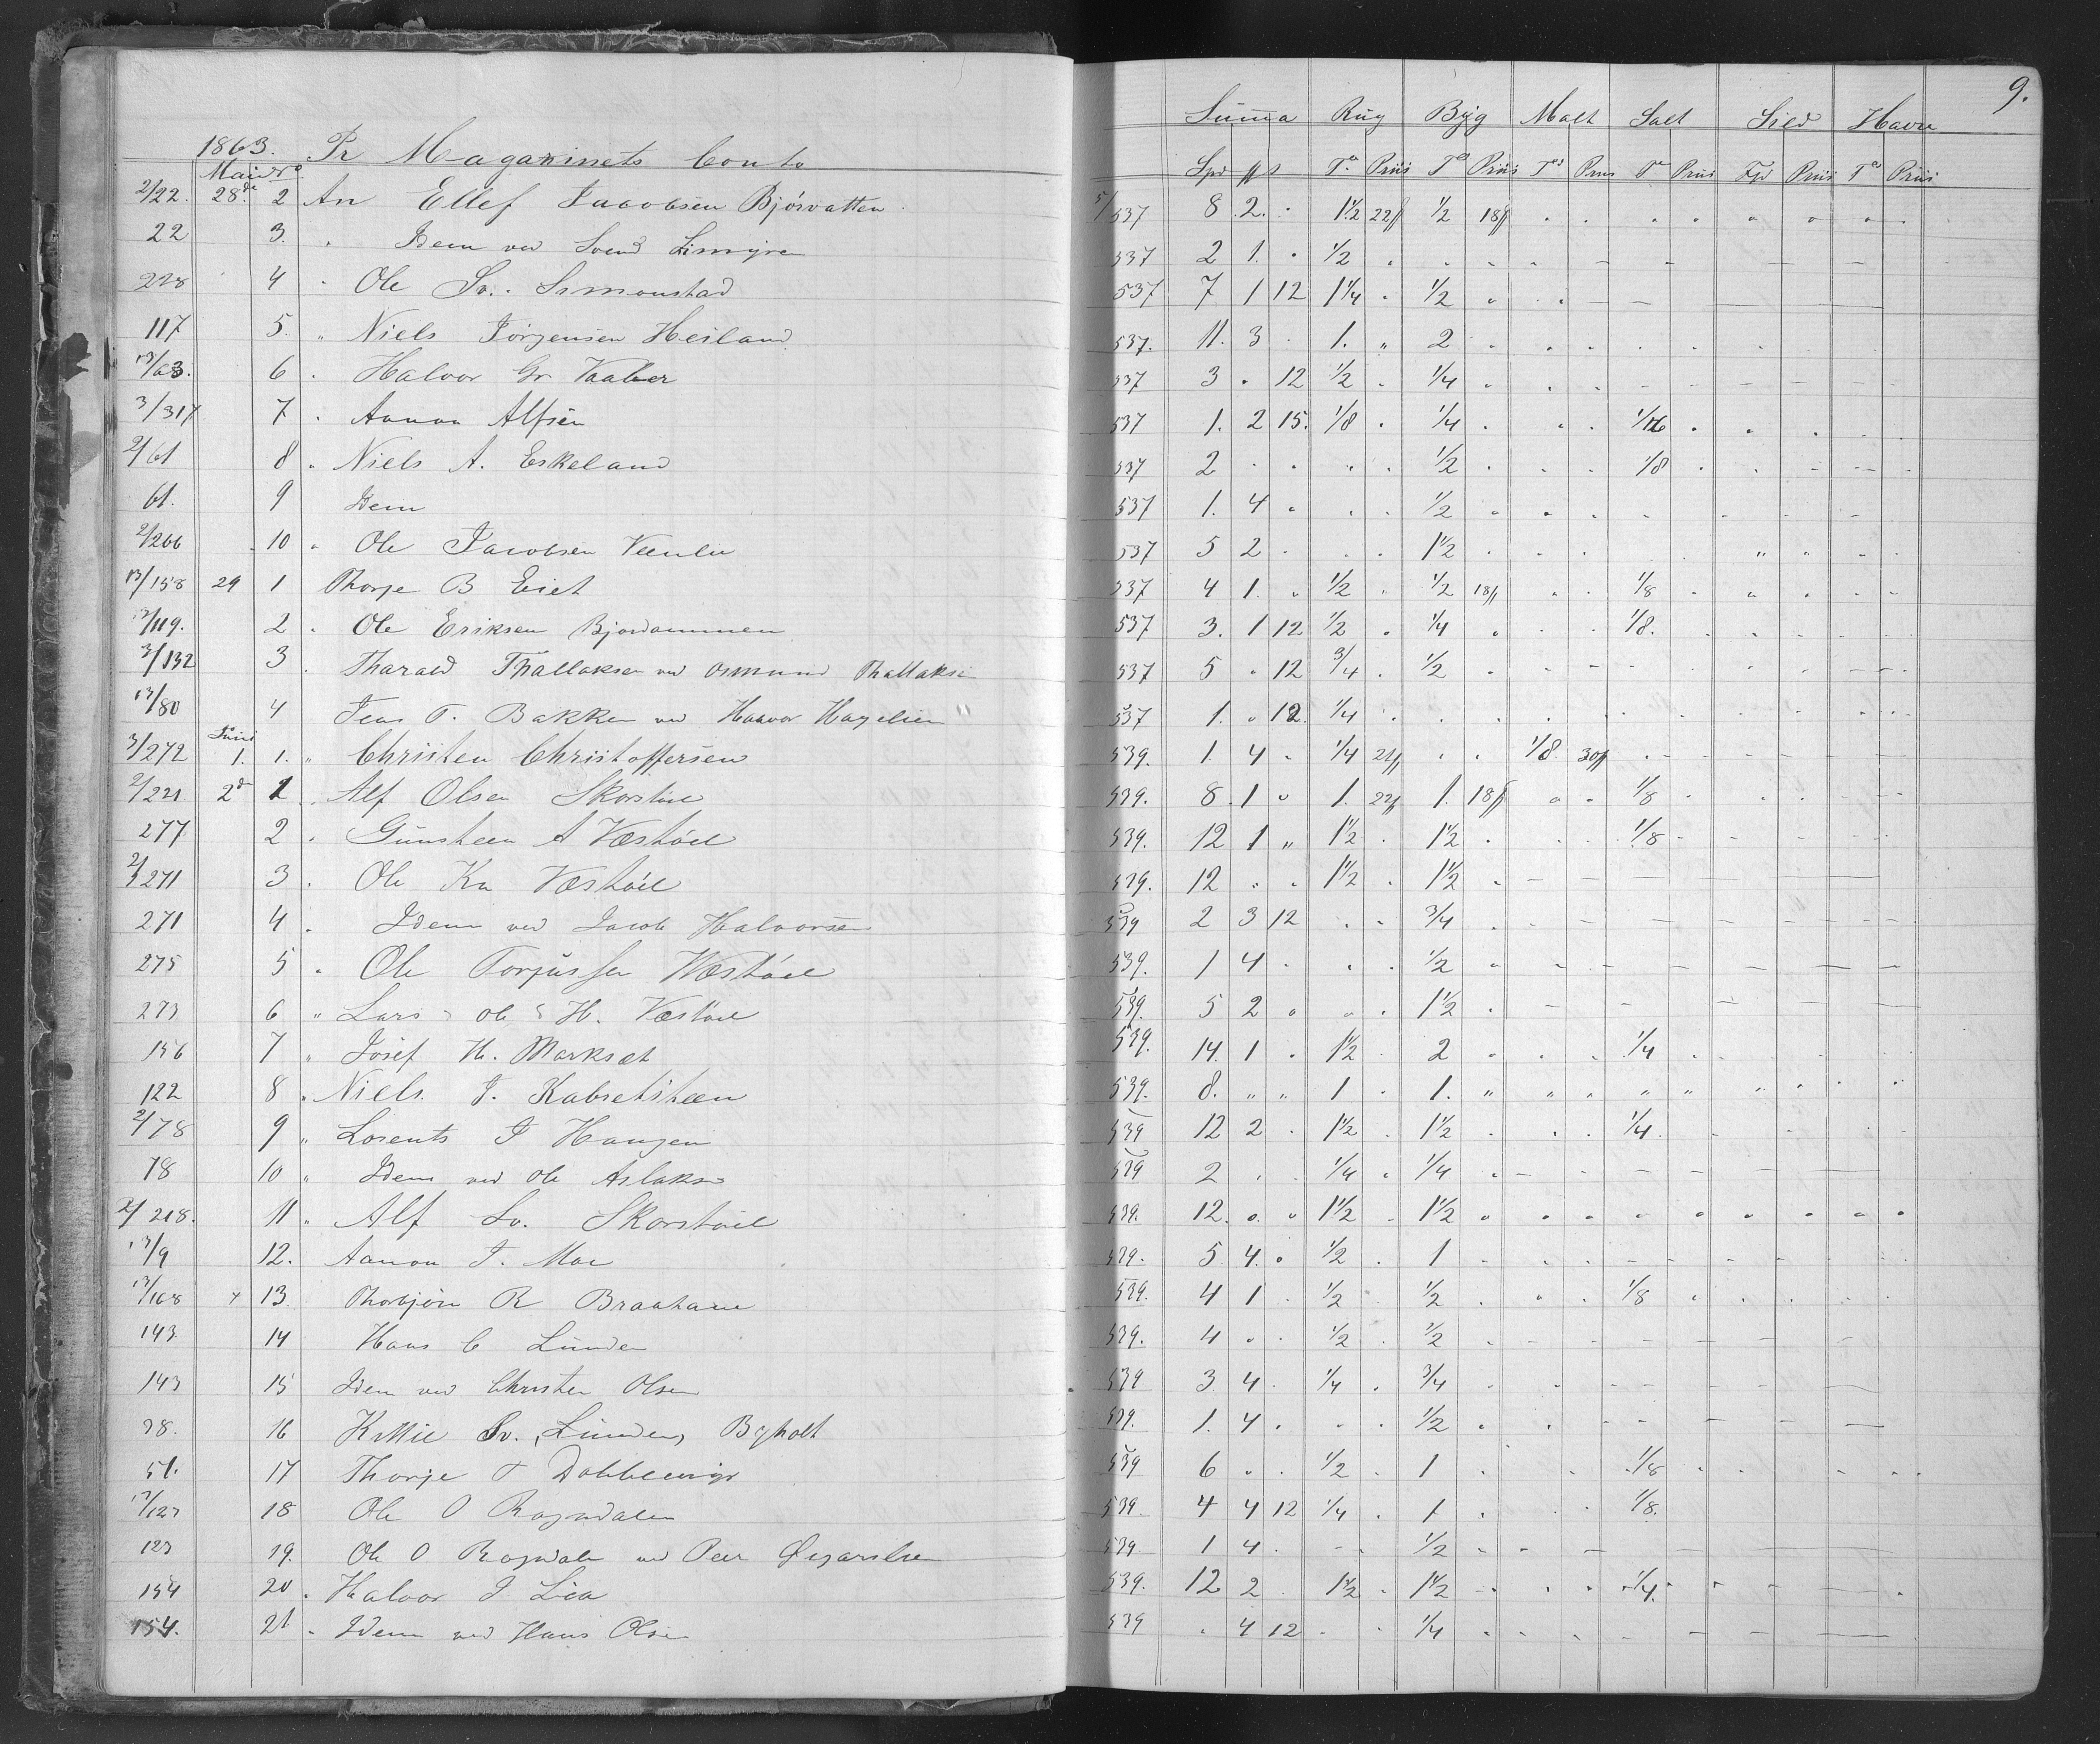 9.
1863. Pr Magazinets Conto
Summa Rug Byg Malt Salt Sild Havre
Mai No
Spd Pris Pris Pris Pris Pris Pris
2/22. 28de 2 An Ellef Jacobsen Bjórvatten 5/537 8 2. 1½ 22 ½ 18
22 3. " Idem ved Svend Limyren 537 2 1. ½
228 4 " Ole Sv. Simonstad 537 7 1 12 1¼ ½
117 5. " Niels Jörgensen Heiland 537. 11. 3 1. " 2
13/63. 6 " Halvor Gr. Vaaler 537 3 " 12 ½ ¼
3/317 7 " Aanon Alfsen 537 1. 2 15. 1/8 ¼ 1/16
2/61 8 " Niels A. Eskeland 537 2 ½ 1/8
61. 9 Idem 537 1. 4 ½
2/266 10 " Ole Jacobsen 537 5 2 1½
13/158 29 1 Thorje B Eiet 537 4 1 ½ ½ 18 1/8
13/119. 2 " Ole Eriksen Bjordammen 537 3. 1 12 ½ ¼ 1/8.
3/132 3 " Tharald Thallaksen ved Osmund Thallaksen 537 5 " 12 ¾ ½
13/80 4 Jens T. Bakken ved Halvor 537 1. " 12 ¼
Juni
3/272 1. 1. " Christen Christoffersen 539. 1 4 ¼ 22 1/8 30
2/221 2d 1 " Alf Olsen Skorstöel 539. 8 1 1. 22 1. 18 1/8
277 2 " Gunsteen A Væstöel 539. 12 1 " 1½ 1½ 1/8
2/271 3 " Ole Kn Væstöel 539. 12 1½ 1½
271 4 " Idem ved Jacob Halvorsen 539 2 3 12 ¾
275 5 " Ole Torjussen Væstöel 539. 1 4 ½
273 6 " Lars Ole H. Væstöel 539. 5 2 1½
156 7 " Josef H. Markset 539. 14. 1 1½ 2 ¼
122 8 " Niels J. Kabretsteen 539. 8. " " 1 1.
2/78 9 " Lorents J Haugen 539 12 2 1½ 1½ ¼
78 10 " Idem ved Ole Aslaksen 539 2 ¼ ¼
2/218. 11 " Alf Sv. Skorstöel 539. 12 1½ 1½
13/9 12. Aanon J. Moe 539. 5 4. ½ 1
13/168 13 Thorbjörn R Braatane 539. 4 1 ½ ½ 1/8
143 14 Hans C Lunden 539. 4 ½ ½
143 15 Idem ved Christen Olsen 539 3 4 ¼ ¾
38. 16 Kittil Sv. Lunden, Bøholt 539. 1. 4 ½
51. 17 Thorje T 539 6 ½ 1 1/8
13/123 18 Ole O Rogndalen 539. 4 4 12 ¼ 1 1/8.
123 19. Ole O Rogndalen ved Peer 539. 1 4 ½
154 20 " Halvor J Lia 539. 12 2 1½ 1½ ¼
154. 21 " Idem ved Hans Olsen 539 4 12 ¼